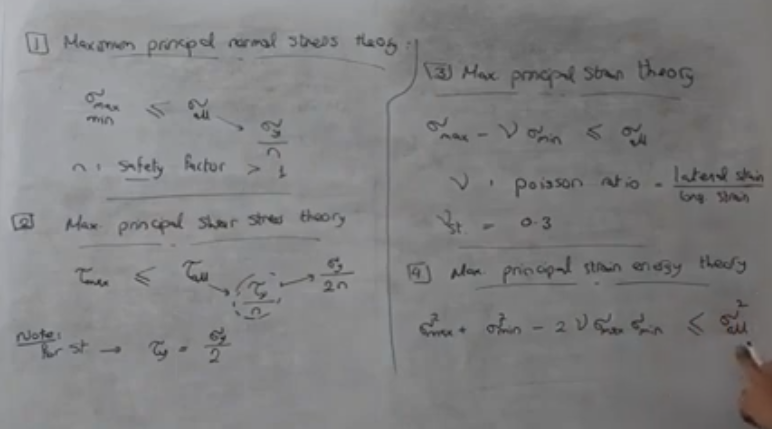 1 Maximum principal normal stress theory:
σmax min ≤ σall → σy/n
n: safety factor > 1
2 Max. principal shear stress theory
τmax ≤ τall → τy/n → σy/2n
Note:
for st → τy = σy/2
3 Max principal strain theory
σmax - ν σmin ≤ σall
ν : poisson ratio = lateral strain/long strain
νst. = 0.3
4 Max principal strain energy theory
σ²max + σ²min - 2 ν σmax σmin ≤ σ²all